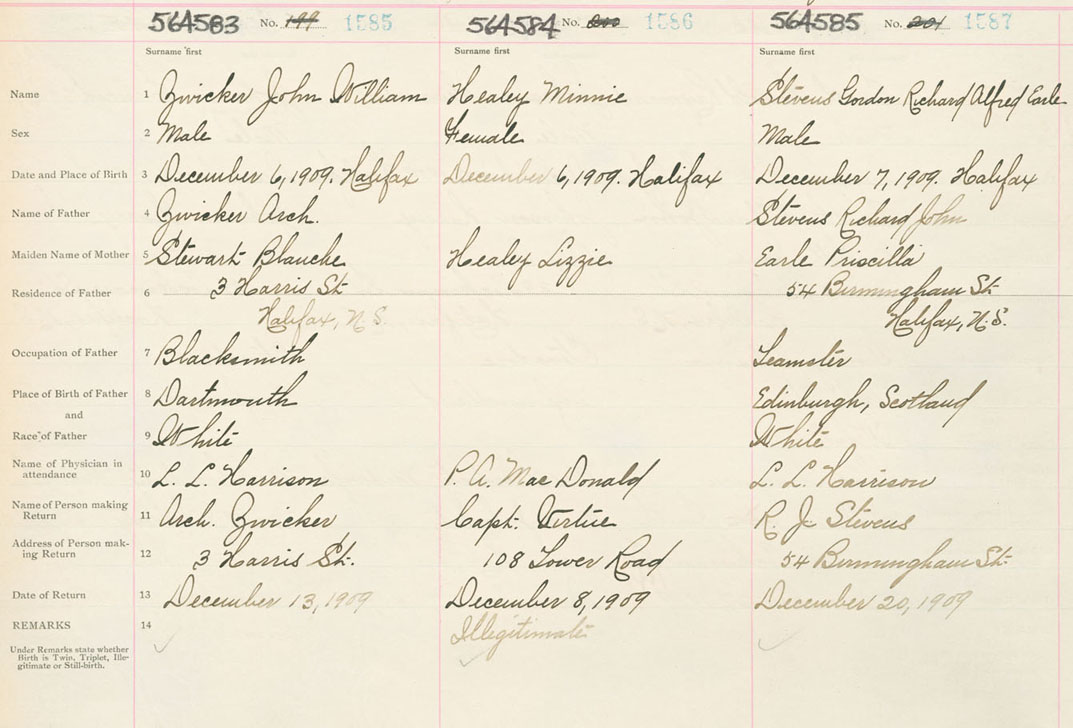 564583 No. 199 1585 564584 No. 200 1586 564585 No. 201 1587
Surname first Surname first Surname first
Name 1 Zwicker John William Healey Minnie Stevens Gordon Richard Alfred Earle
Sex 2 Male Female Male
Date and Place of Birth 3 December 6, 1909. Halifax December 6, 1909. Halifax December 7, 1909. Halifax
Name of Father 4 Zwicker Arch. Stevens Richard John
Maiden Name of Mother 5 Stewart Blanche Healey Lizzie Earle Priscilla
Residence of Father 6 3 Harris St. 54 Birmingham St.
Halifax, N.S. Halifax, N.S.
Occupation of Father 7 Blacksmith Teamster
Place of Birth of Father 8 Dartmouth Edinburgh, Scotland
and
Race of Father 9 White White
Name of Physician in
attendance 10 L. L. Harrison P. A. MacDonald L. L. Harrison
Name of Person making
Return 11 Arch. Zwicker Capt. Virtue R. J. Stevens
Address of Person mak-
ing Return 12 3 Harris St. 108 Tower Road 54 Birmingham St.
Date of Return 13 December 13, 1909 December 8, 1909 December 20, 1909
REMARKS 14 Illegitimate
Under Remarks state whether
Birth is Twin, Triplet, Ille-
gitimate or Still-birth.